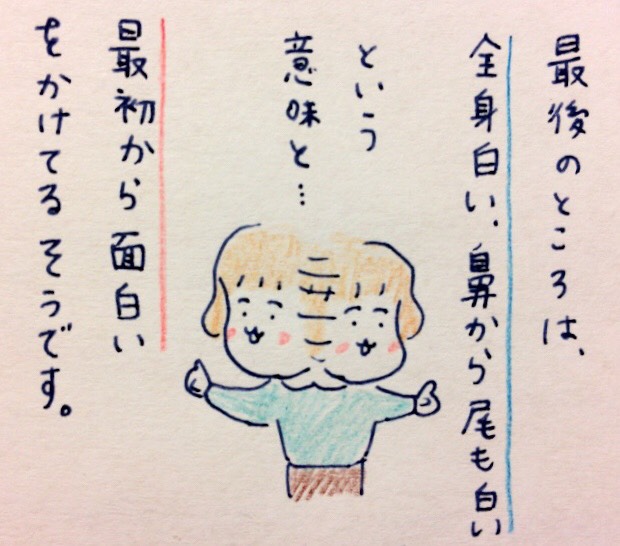 最後のところは、
全身白い、鼻から尾も白い
という
意味と…
最初から面白い
をかけてるそうです。